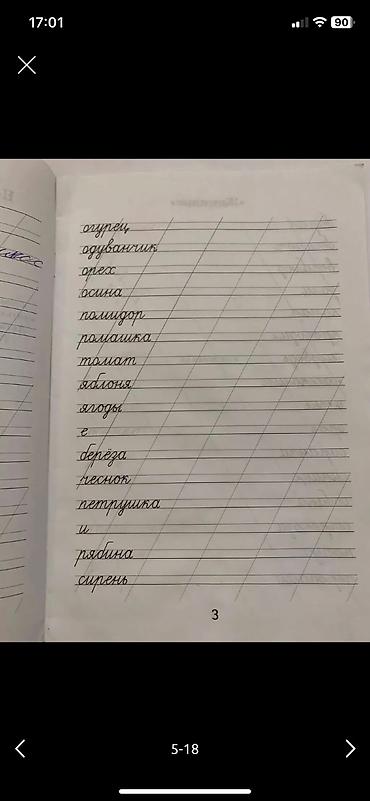 17:01
90
огурец
одуванчик
орех
осина
помидор
ромашка
томат
яблоня
ягоды
е
берёза
чеснок
петрушка
и
рябина
сирень
3
5-18